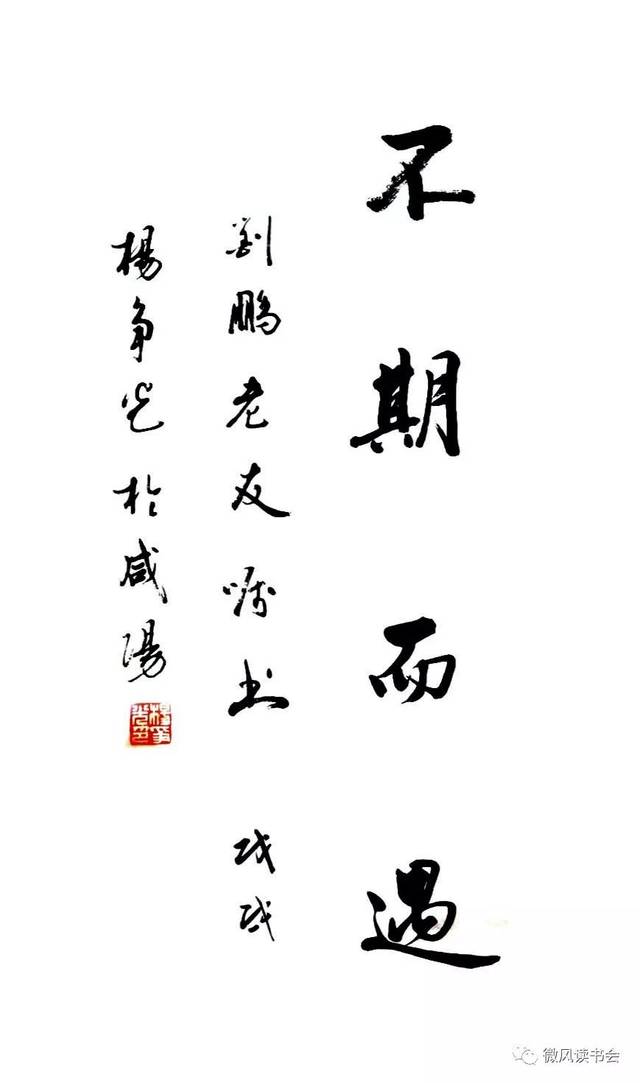 不期而遇
劉鵬老友嘱书 戊戌
楊争光於咸陽
楊争光印
微风读书会